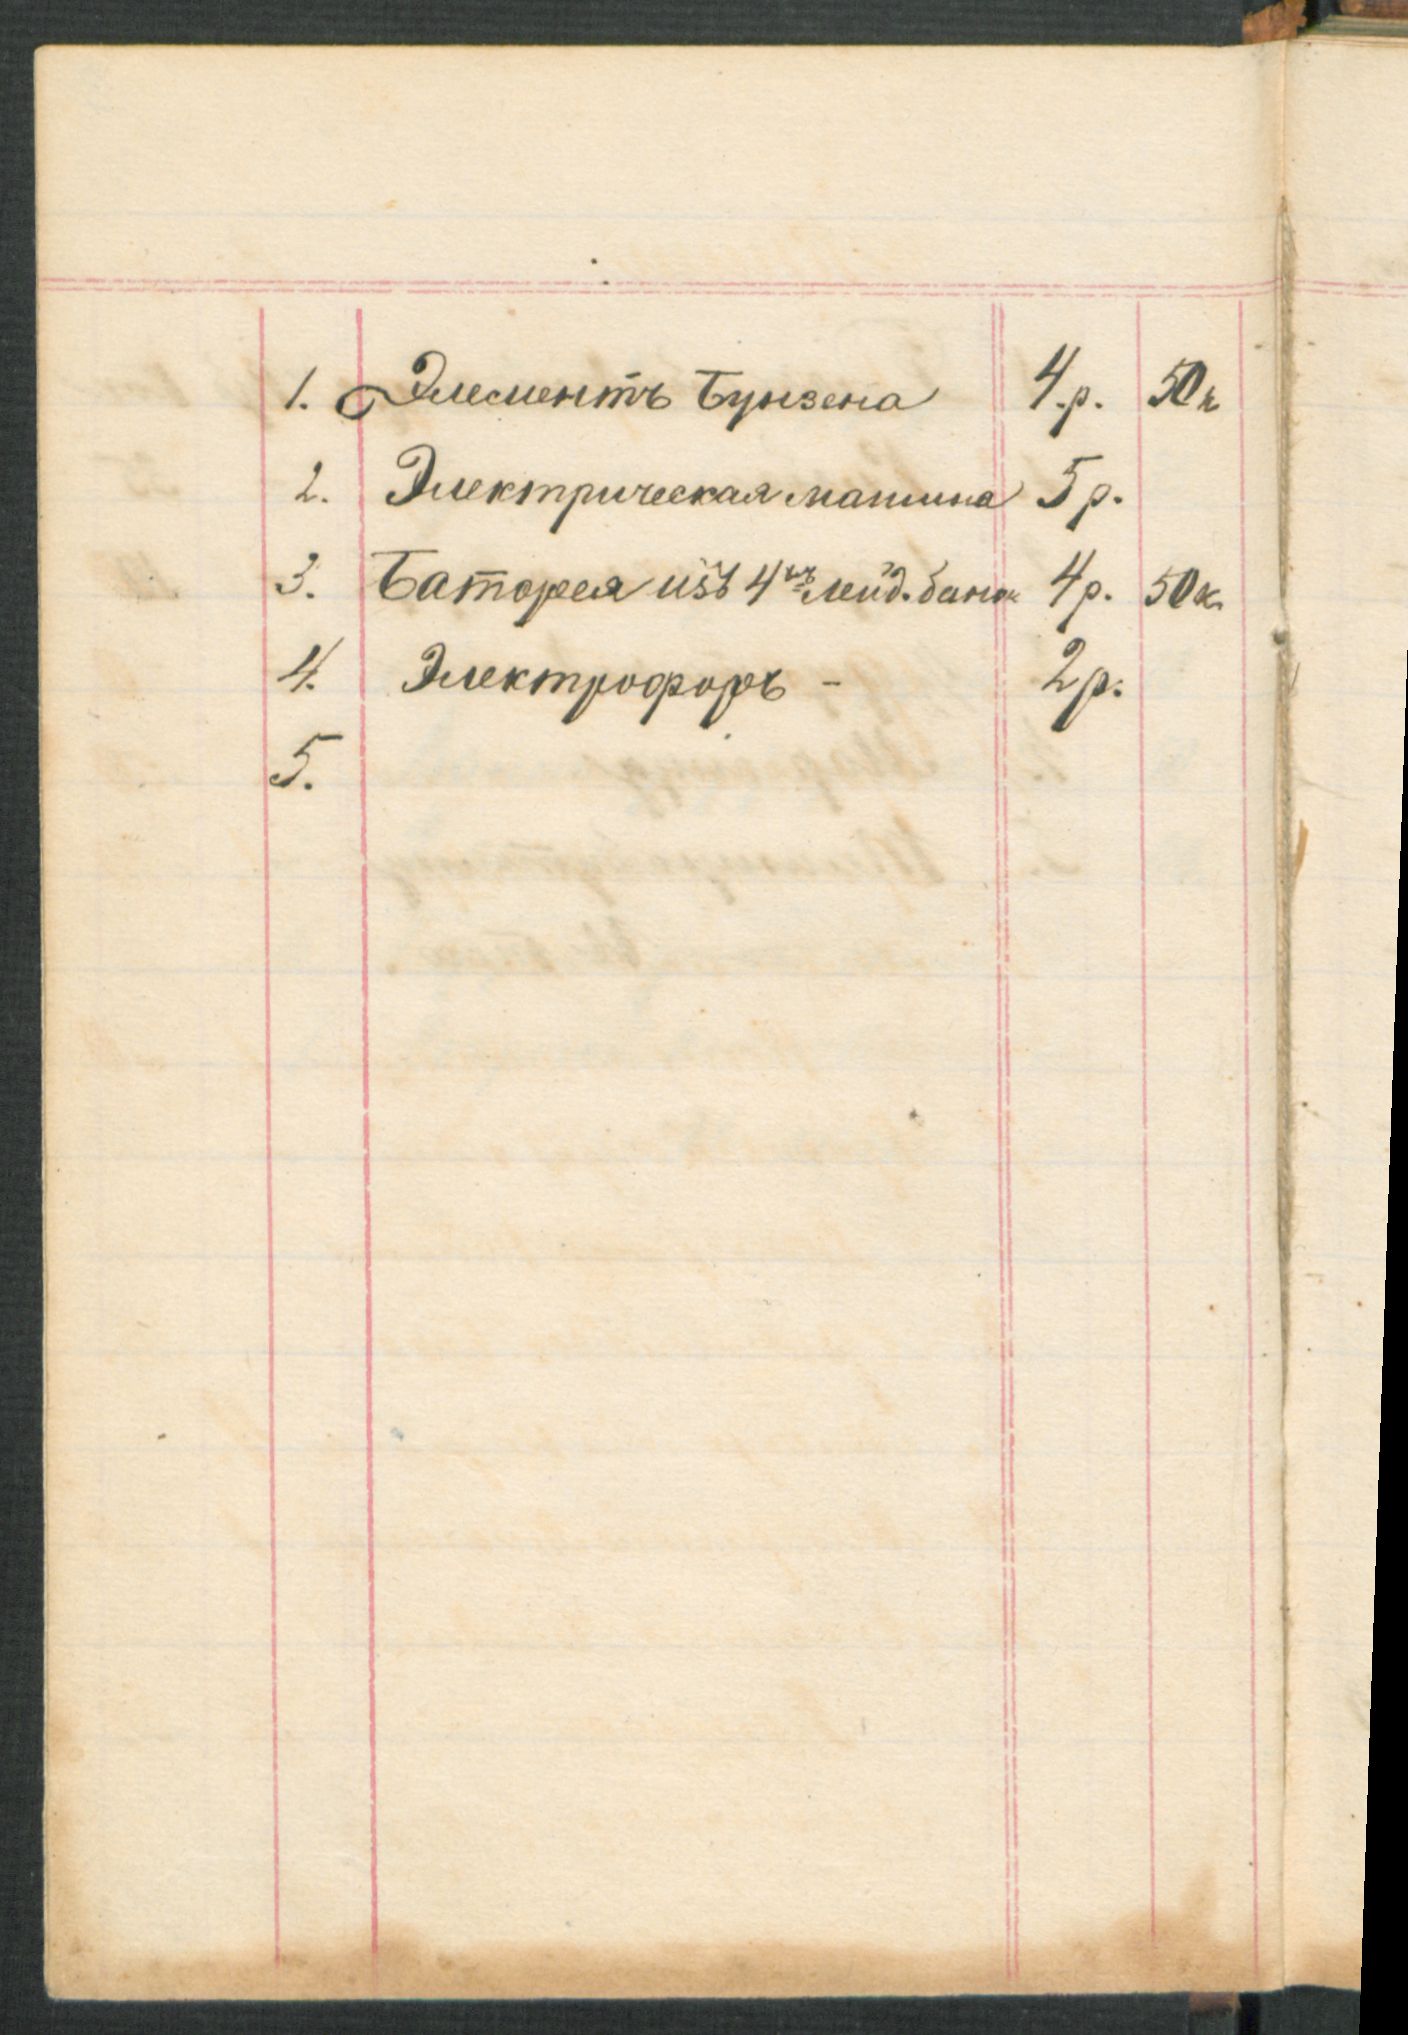 1. Элементъ Бунзена 4.р. 50к
2. Электрическая машина 5р.
3. Баторея изъ 4хъ лейд. банок 4р. 50к.
4. Электрофоръ - 2р.
5.